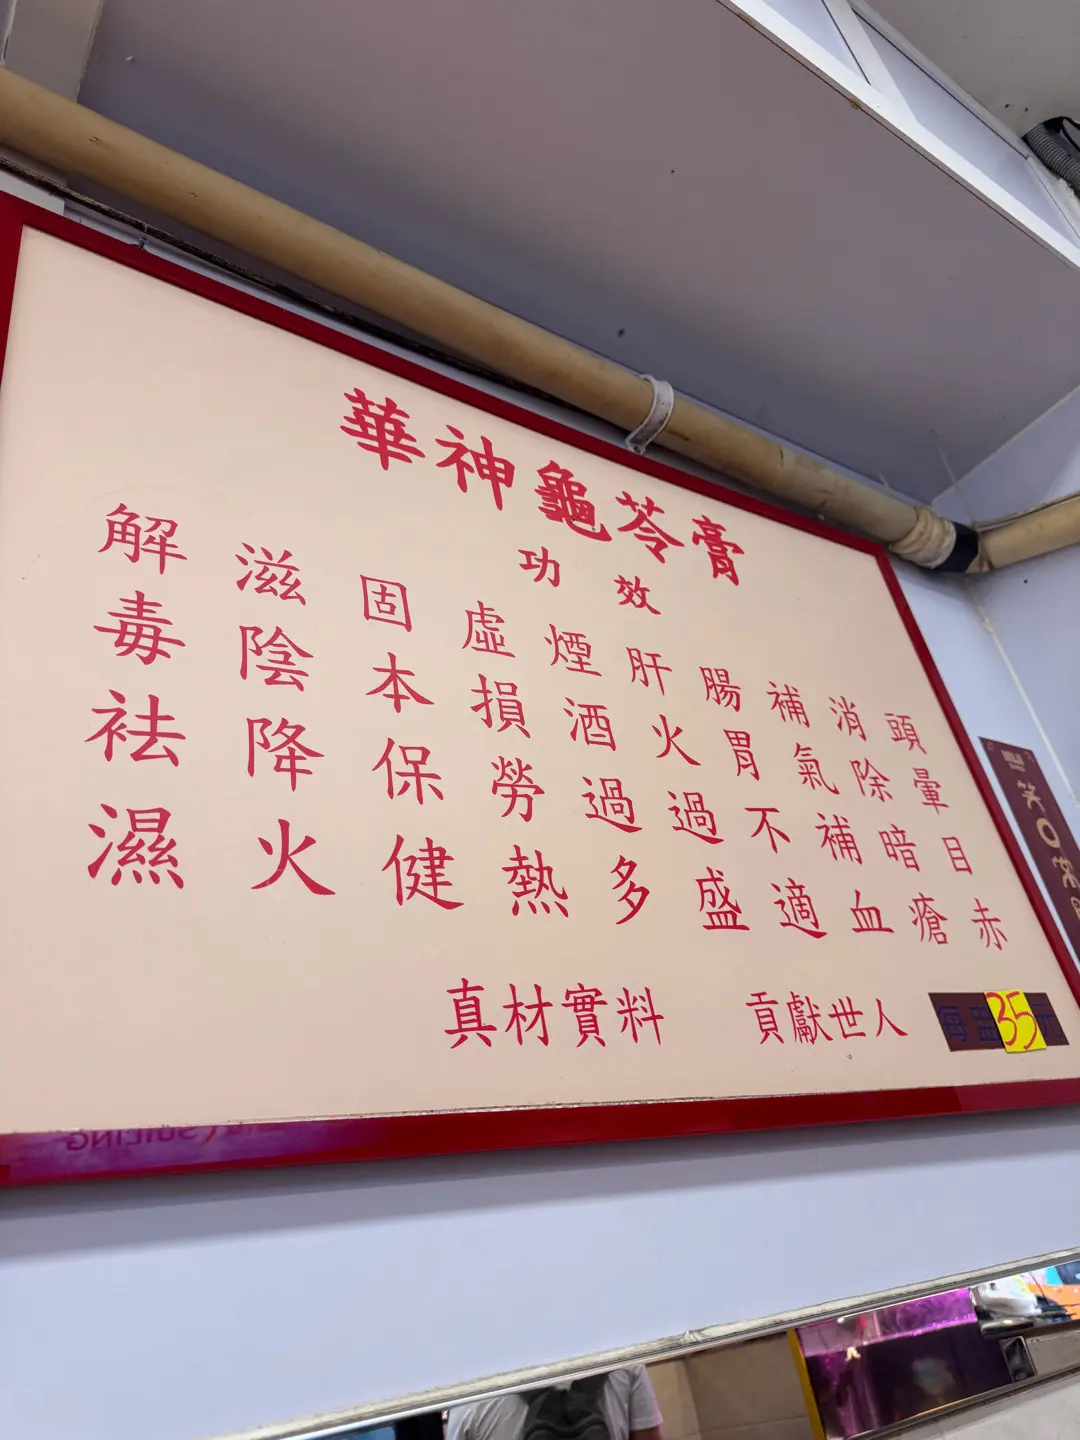 華神龜苓膏
功效
解毒祛濕
滋陰降火
固本保健
虛損勞熱
煙酒過多
肝火過盛
腸胃不適
補氣補血
消除暗瘡
頭暈目赤
真材實料 貢獻世人
每盅35元
笑口常